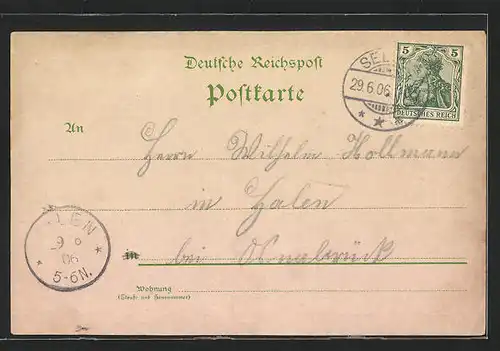 Deutsche Reichspost
Postkarte
SEL
29.6.06
5 5
DEUTSCHES REICH
An
Herrn Wilhelm Hollmann
in Halen
in bei Osnabrück
Wohnung
(Straße und Hausnummer)
LEN
9 6
06
5-6N.